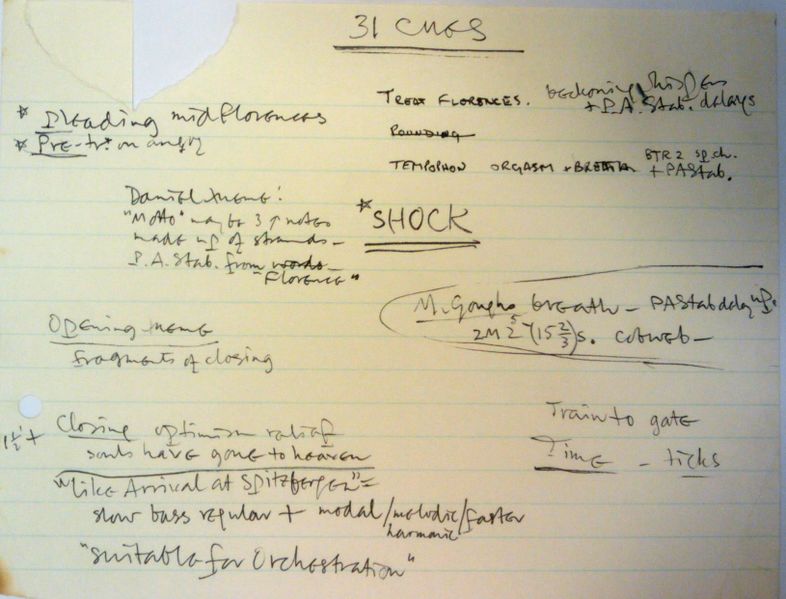 31 CUES
TREAT FLORENCES. beckoning hispers
+ P.A. Stab. delays
* Pleading mid Florences
* Pre-tr* on angry
POUNDING
TEMPOPHON ORGASM + BREATH BTR 2 sp.ch.
+ PAStab.
Daniel theme:
"Motto" maybe 3 ↑ notes
made up of strands -
P.A. Stab. from words -
"Florence"
* SHOCK
McGoughs breath - PAStab delay up.
2M 5" (15 2/3)s. cobweb -
Opening theme
fragments of closing
1 1/2' + Closing optimism relief
souls have gone to heaven
"Like Arrival at Spitzbergen" =
slow bass regular + modal/melodic/faster
harmonic
"suitable for Orchestration"
Train to gate
Time - ticks